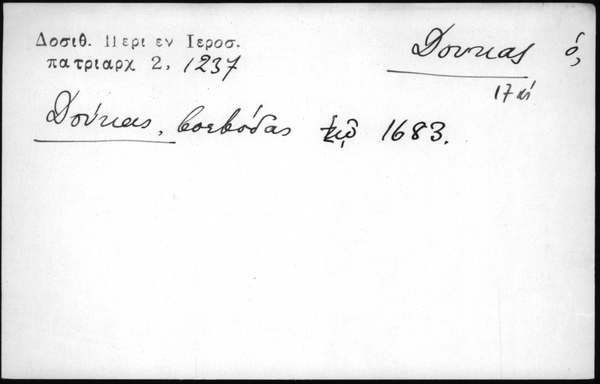 Δοσιθ. Περι εν Ιεροσ.
πατριαρχ 2, 1237
Δουκας ό,
17 αί
Δούκας, βοεβόδας τῷ 1683.